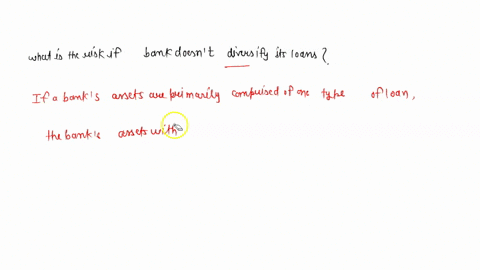 what is the risk if bank doesn't diversify its loans?
If a bank's assets are primarily comprised of one type of loan,
the bank's assets with